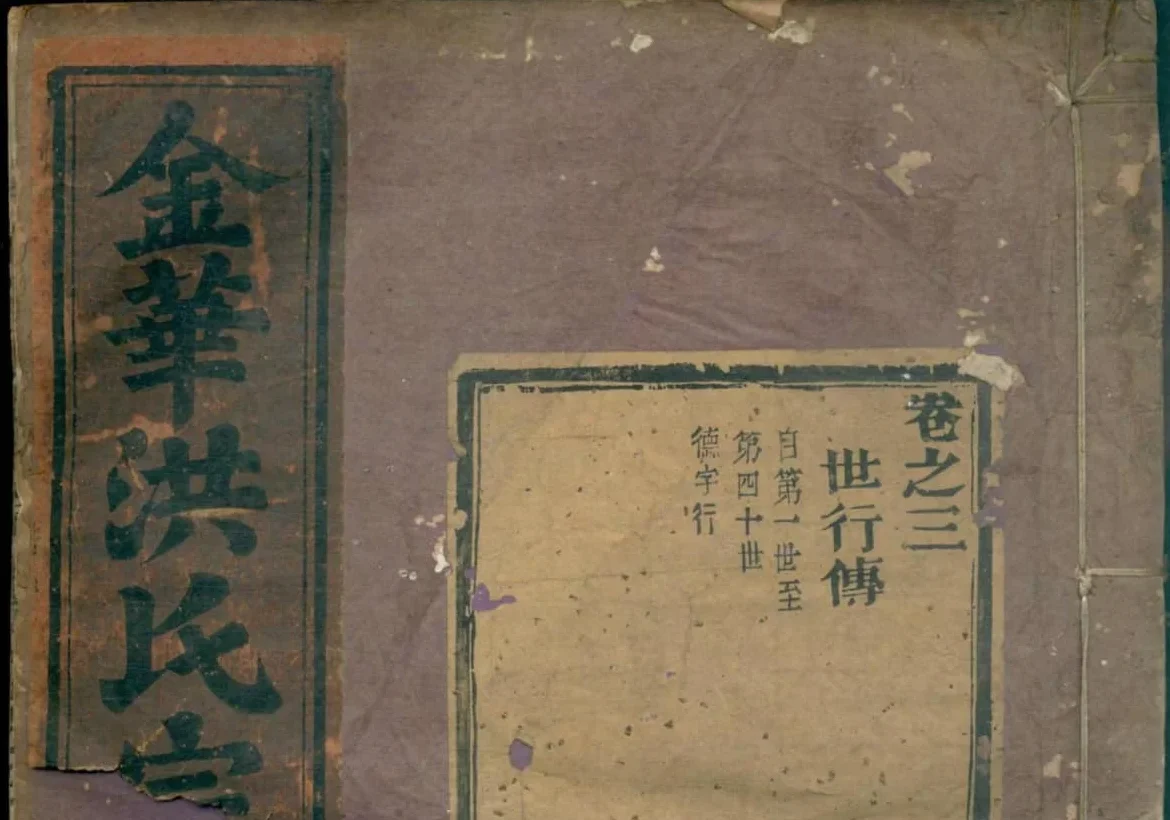 卷之三
世行傳
自第一世至
第四十世
德字行
金華洪氏宗